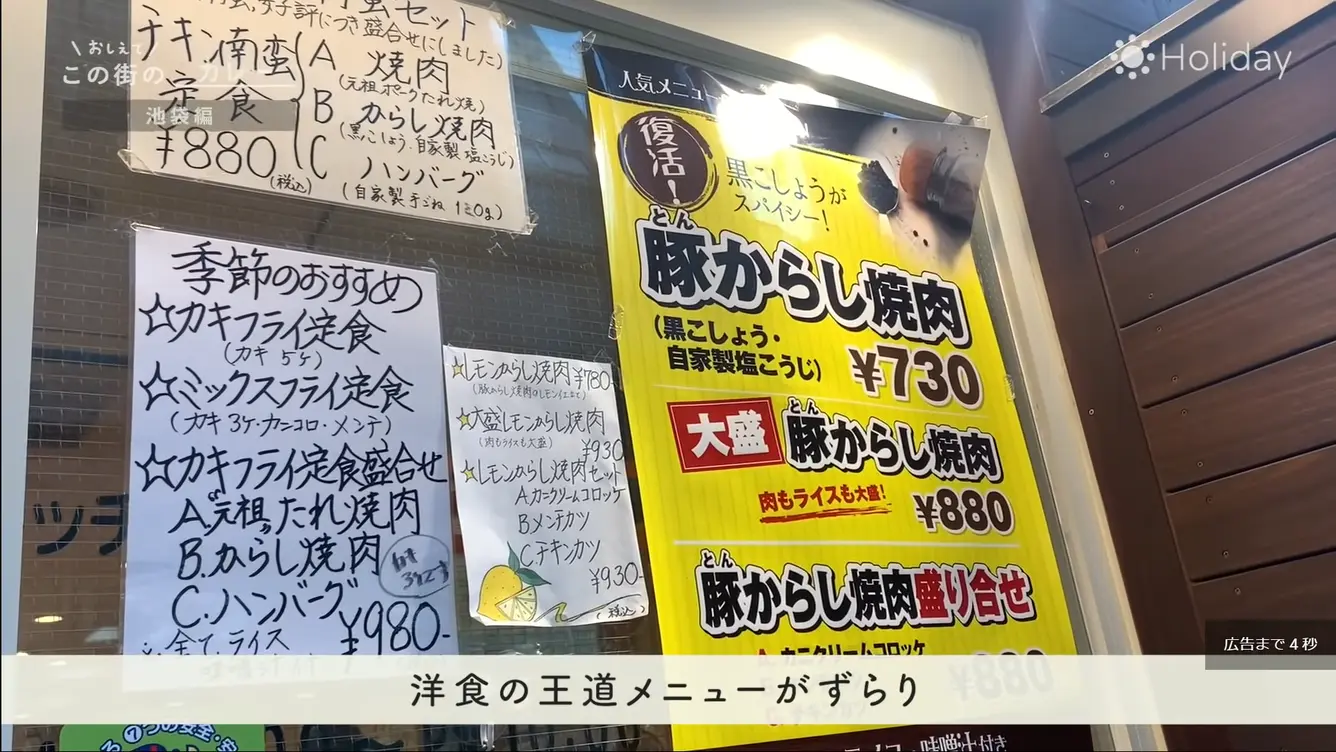 おしえて
この街のカレー
池袋編
Holiday
セット
好評につき盛合せにしました)
チキン南蛮
定食
¥880
(税込)
A 焼肉
(元祖ポークたれ焼)
B からし焼肉
(黒こしょう・自家製塩こうじ)
C ハンバーグ
(自家製手ごね
季節のおすすめ
☆カキフライ定食
(カキ 5ケ)
☆ミックスフライ定食
(カキ 3ケ・カニコロ・メンチ)
☆カキフライ定食盛合せ
A."元祖"たれ焼肉
B.からし焼肉
C.ハンバーグ
カキ
3ケです
¥980-
※全てライス
☆レモンからし焼肉 ¥780-
(豚からし焼肉のレモン仕立て)
☆大盛レモンからし焼肉
(肉もライスも大盛)
¥930
☆レモンからし焼肉セット
A.カニクリームコロッケ
B.メンチカツ
C.チキンカツ
¥930-
(税込)
人気メニュー
復活!
黒こしょうが
スパイシー!
とん
豚からし焼肉
(黒こしょう・
自家製塩こうじ)
¥730
大盛
とん
豚からし焼肉
肉もライスも大盛!
¥880
とん
豚からし焼肉盛り合せ
A. カニクリームコロッケ
¥880
味噌汁付き
広告まで 4 秒
洋食の王道メニューがずらり